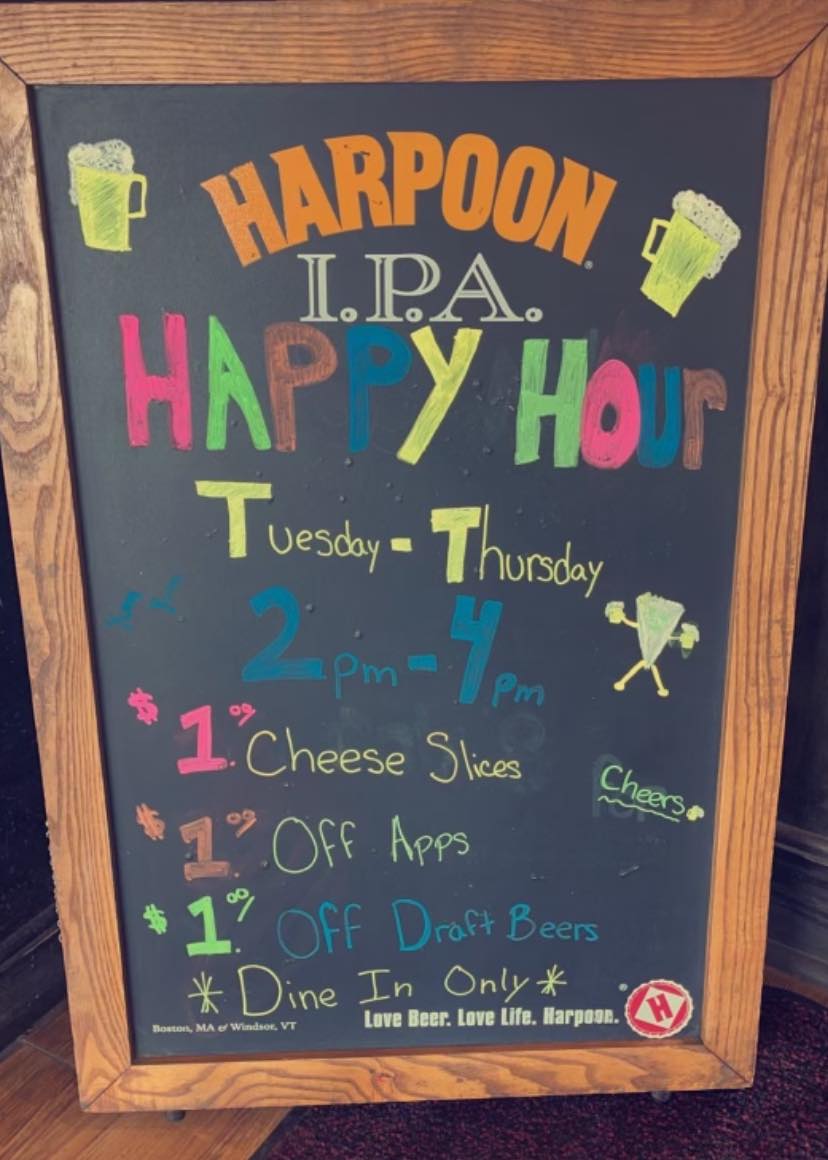 HARPOON®
I.P.A.
HAPPY HOUr
Tuesday - Thursday
2pm - 4pm
$1.00 Cheese Slices
Cheers.
$1.00 Off Apps
$1.00 Off Draft Beers
* Dine In Only *
Boston, MA & Windsor, VT
Love Beer. Love Life. Harpoon.®
H